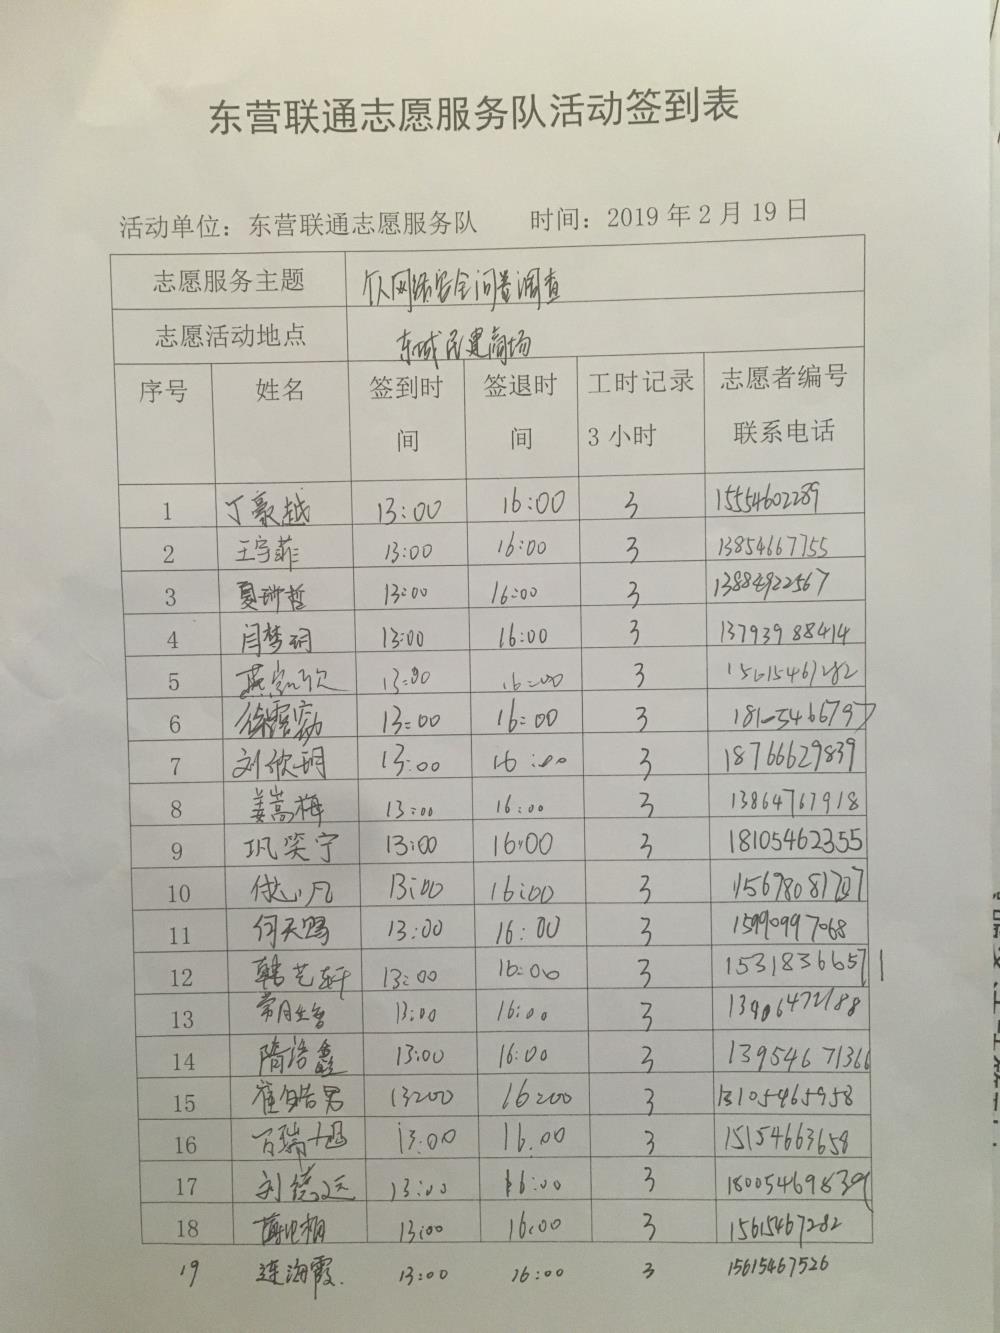 东营联通志愿服务队活动签到表
活动单位：东营联通志愿服务队 时间：2019 年 2 月 19 日
志愿服务主题 网络安全问卷调查
志愿活动地点 东城民建商场
序号 姓名 签到时间 签退时间 工时记录 3 小时 志愿者编号 联系电话
1 丁豪越 13:00 16:00 3 15554602289
2 王宇菲 13:00 16:00 3 13854667755
3 夏珊哲 13:00 16:00 3 13884922567
4 闫梦玥 13:00 16:00 3 13793988414
5 燕 欣 13:00 16:00 3 15615467282
6 徐 13:00 16:00 3
7 刘欣玥 13:00 16:00 3 18766629839
8 姜嵩梅 13:00 16:00 3 13864767918
9 巩笑宁 13:00 16:00 3 18105462355
10 凡 13:00 16:00 3
11 何天赐 13:00 16:00 3 15990997068
12 韩艺轩 13:00 16:00 3 15318366571
13 常 13:00 16:00 3 13906472188
14 隋浩鑫 13:00 16:00 3 13954671366
15 崔皓男 13:00 16:00 3 13105465958
16 万瑞旭 13:00 16:00 3 15154663658
17 刘德远 13:00 16:00 3 18005469839
18 13:00 16:00 3 15615467282
19 连海霞. 13:00 16:00 3 15615467526